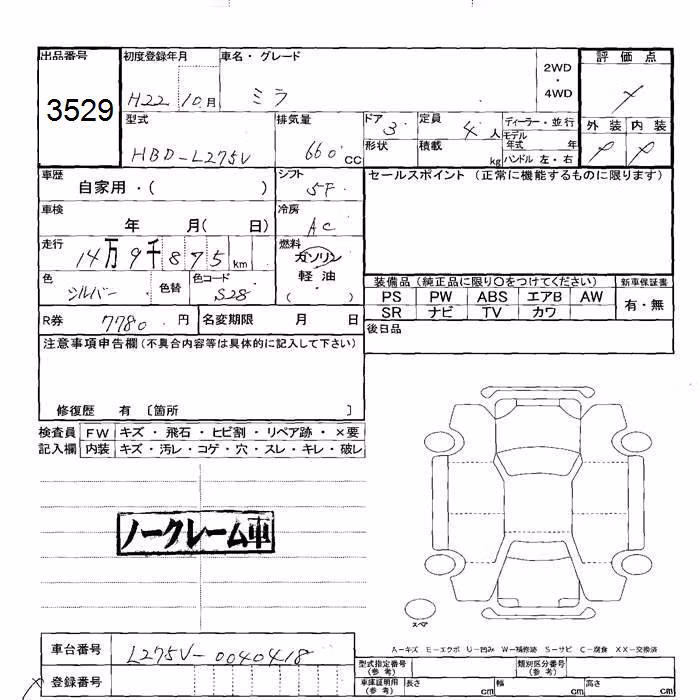 出品番号 初度登録年月 車名・グレード 2WD・4WD 評価点
3529 H22 10月 ミラ
型式 排気量 ドア 定員 ディーラー・並行 外装 内装
HBD-L275V 660cc 3 4人 モデル年式 年
形状 積載 kg ハンドル 左・右
車歴 シフト セールスポイント (正常に機能するものに限ります)
自家用・( ) 5F
車検 冷房
年 月( 日) AC
走行 燃料
14万9千875km ガソリン
軽油・( )
色 色替 色コード 装備品 (純正品に限り○をつけてください) 新車保証書
シルバー S28 PS PW ABS エアB AW 有・無
SR ナビ TV カワ
R券 7780円 名変期限 月 日 後日品
注意事項申告欄 (不具合内容等は具体的に記入して下さい)
修復歴 有 〔箇所 〕
検査員 FW キズ・飛石・ヒビ割・リペア跡・×要
記入欄 内装 キズ・汚レ・コゲ・穴・スレ・キレ・破レ
ノークレーム車
スペア
A-キズ E-エクボ U-凹み W-補修跡 S-サビ C-腐食 XX-交換済
車台番号 L275V-0040418
型式指定番号(参考) 類別区分番号(参考)
登録番号
車庫証明用(参考) 長さ cm 幅 cm 高さ cm